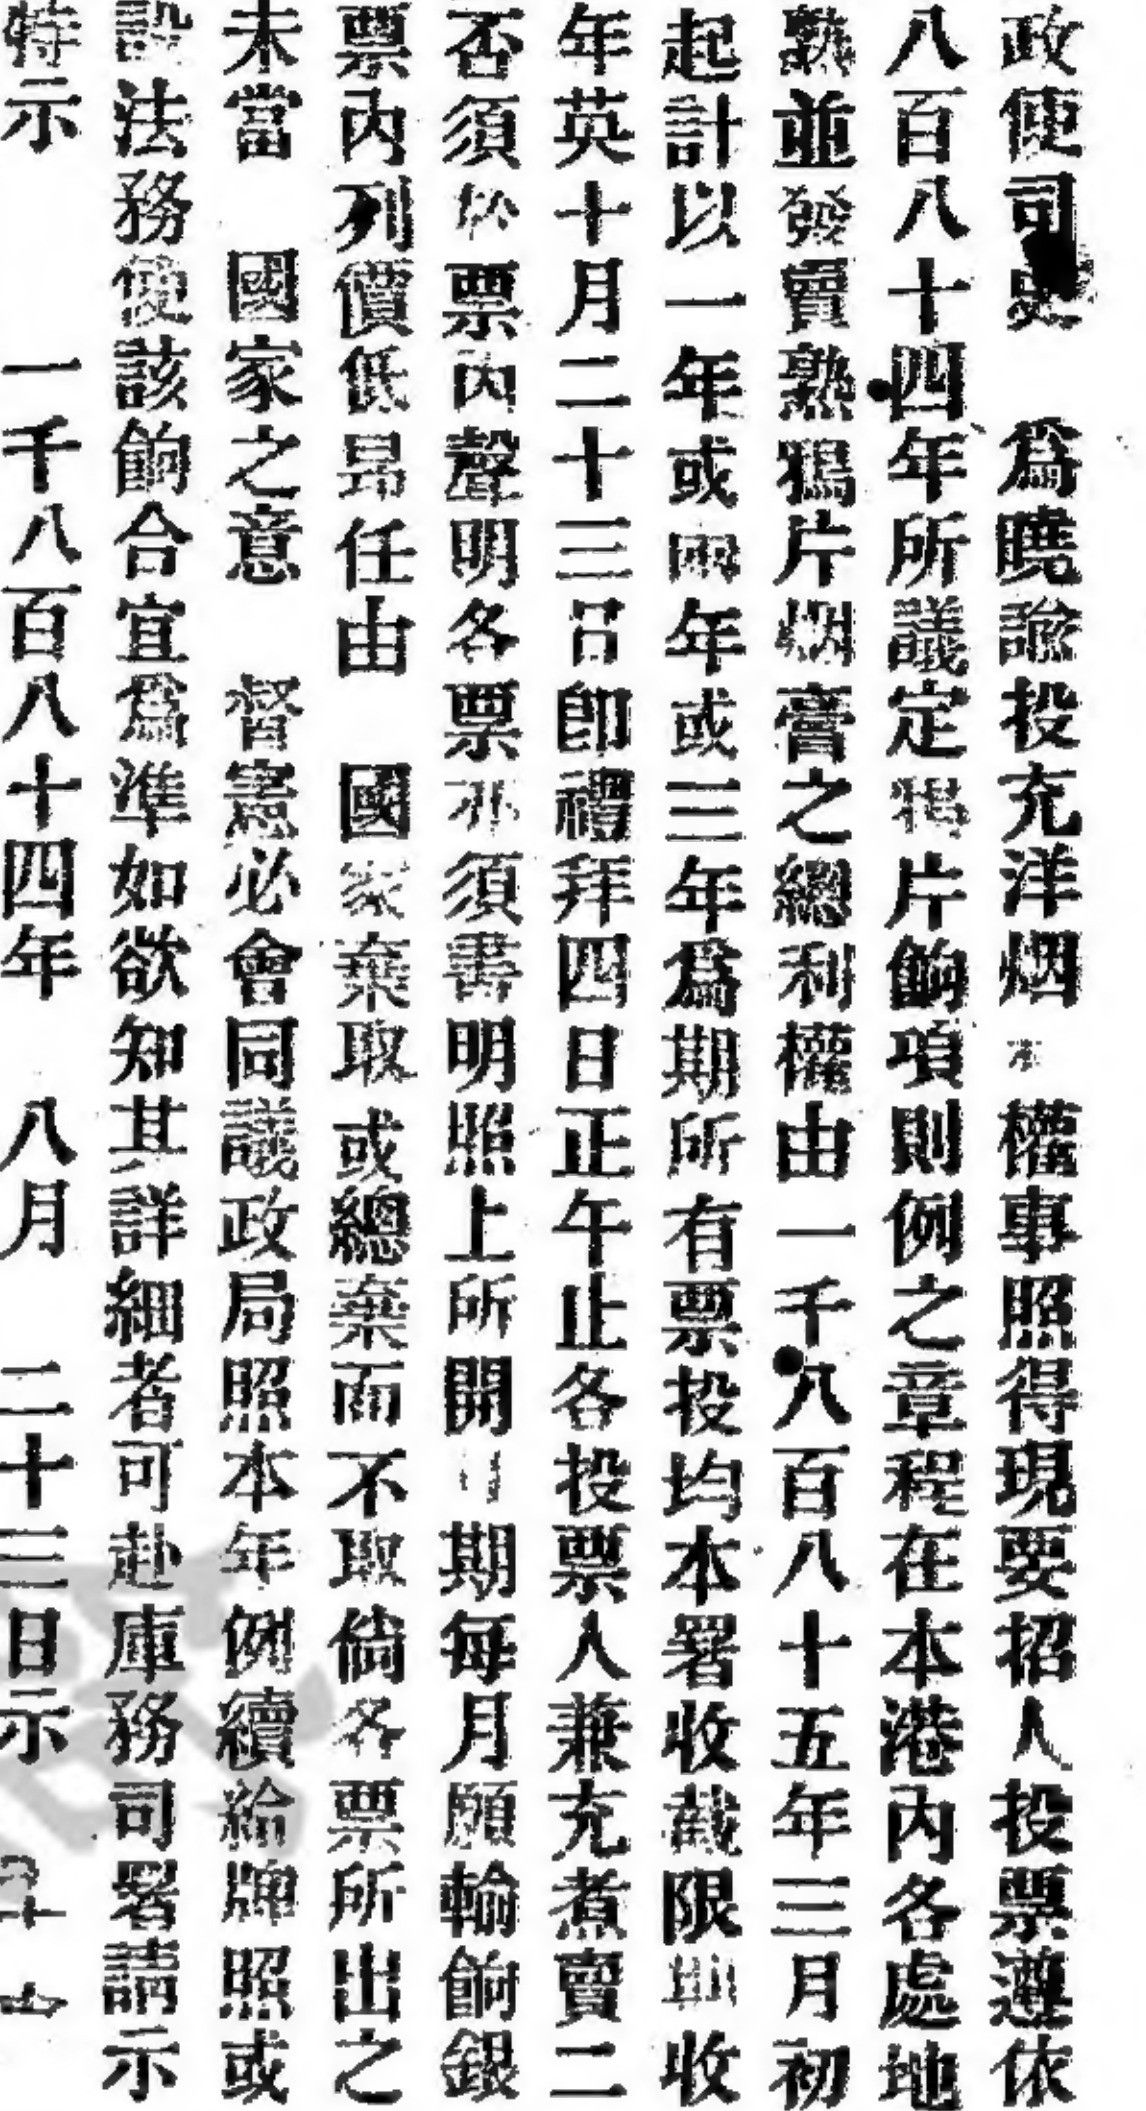 政使司史　爲曉諭投充洋烟　權事照得現要招人投票遵依
八百八十四年所議定鴉片餉項則例之章程在本港內各處地
熟並發賣熟鴉片烟膏之總利權由一千八百八十五年三月初
起計以一年或兩年或三年爲期所有票投均本署收截限期收
年英十月二十三日卽禮拜四日正午止各投票人兼充煮賣二
否須於票內聲明各票亦須書明照上所開　期每月願輸餉銀
票內列價低昻任由　國家棄取或總棄而不取倘各票所出之
未當　國家之意　督憲必會同議政局照本年例續給牌照或
設法務使該餉合宜爲準如欲知其詳細者可赴庫務司署請示
特示　　一千八百八十四年　八月　二十三日示